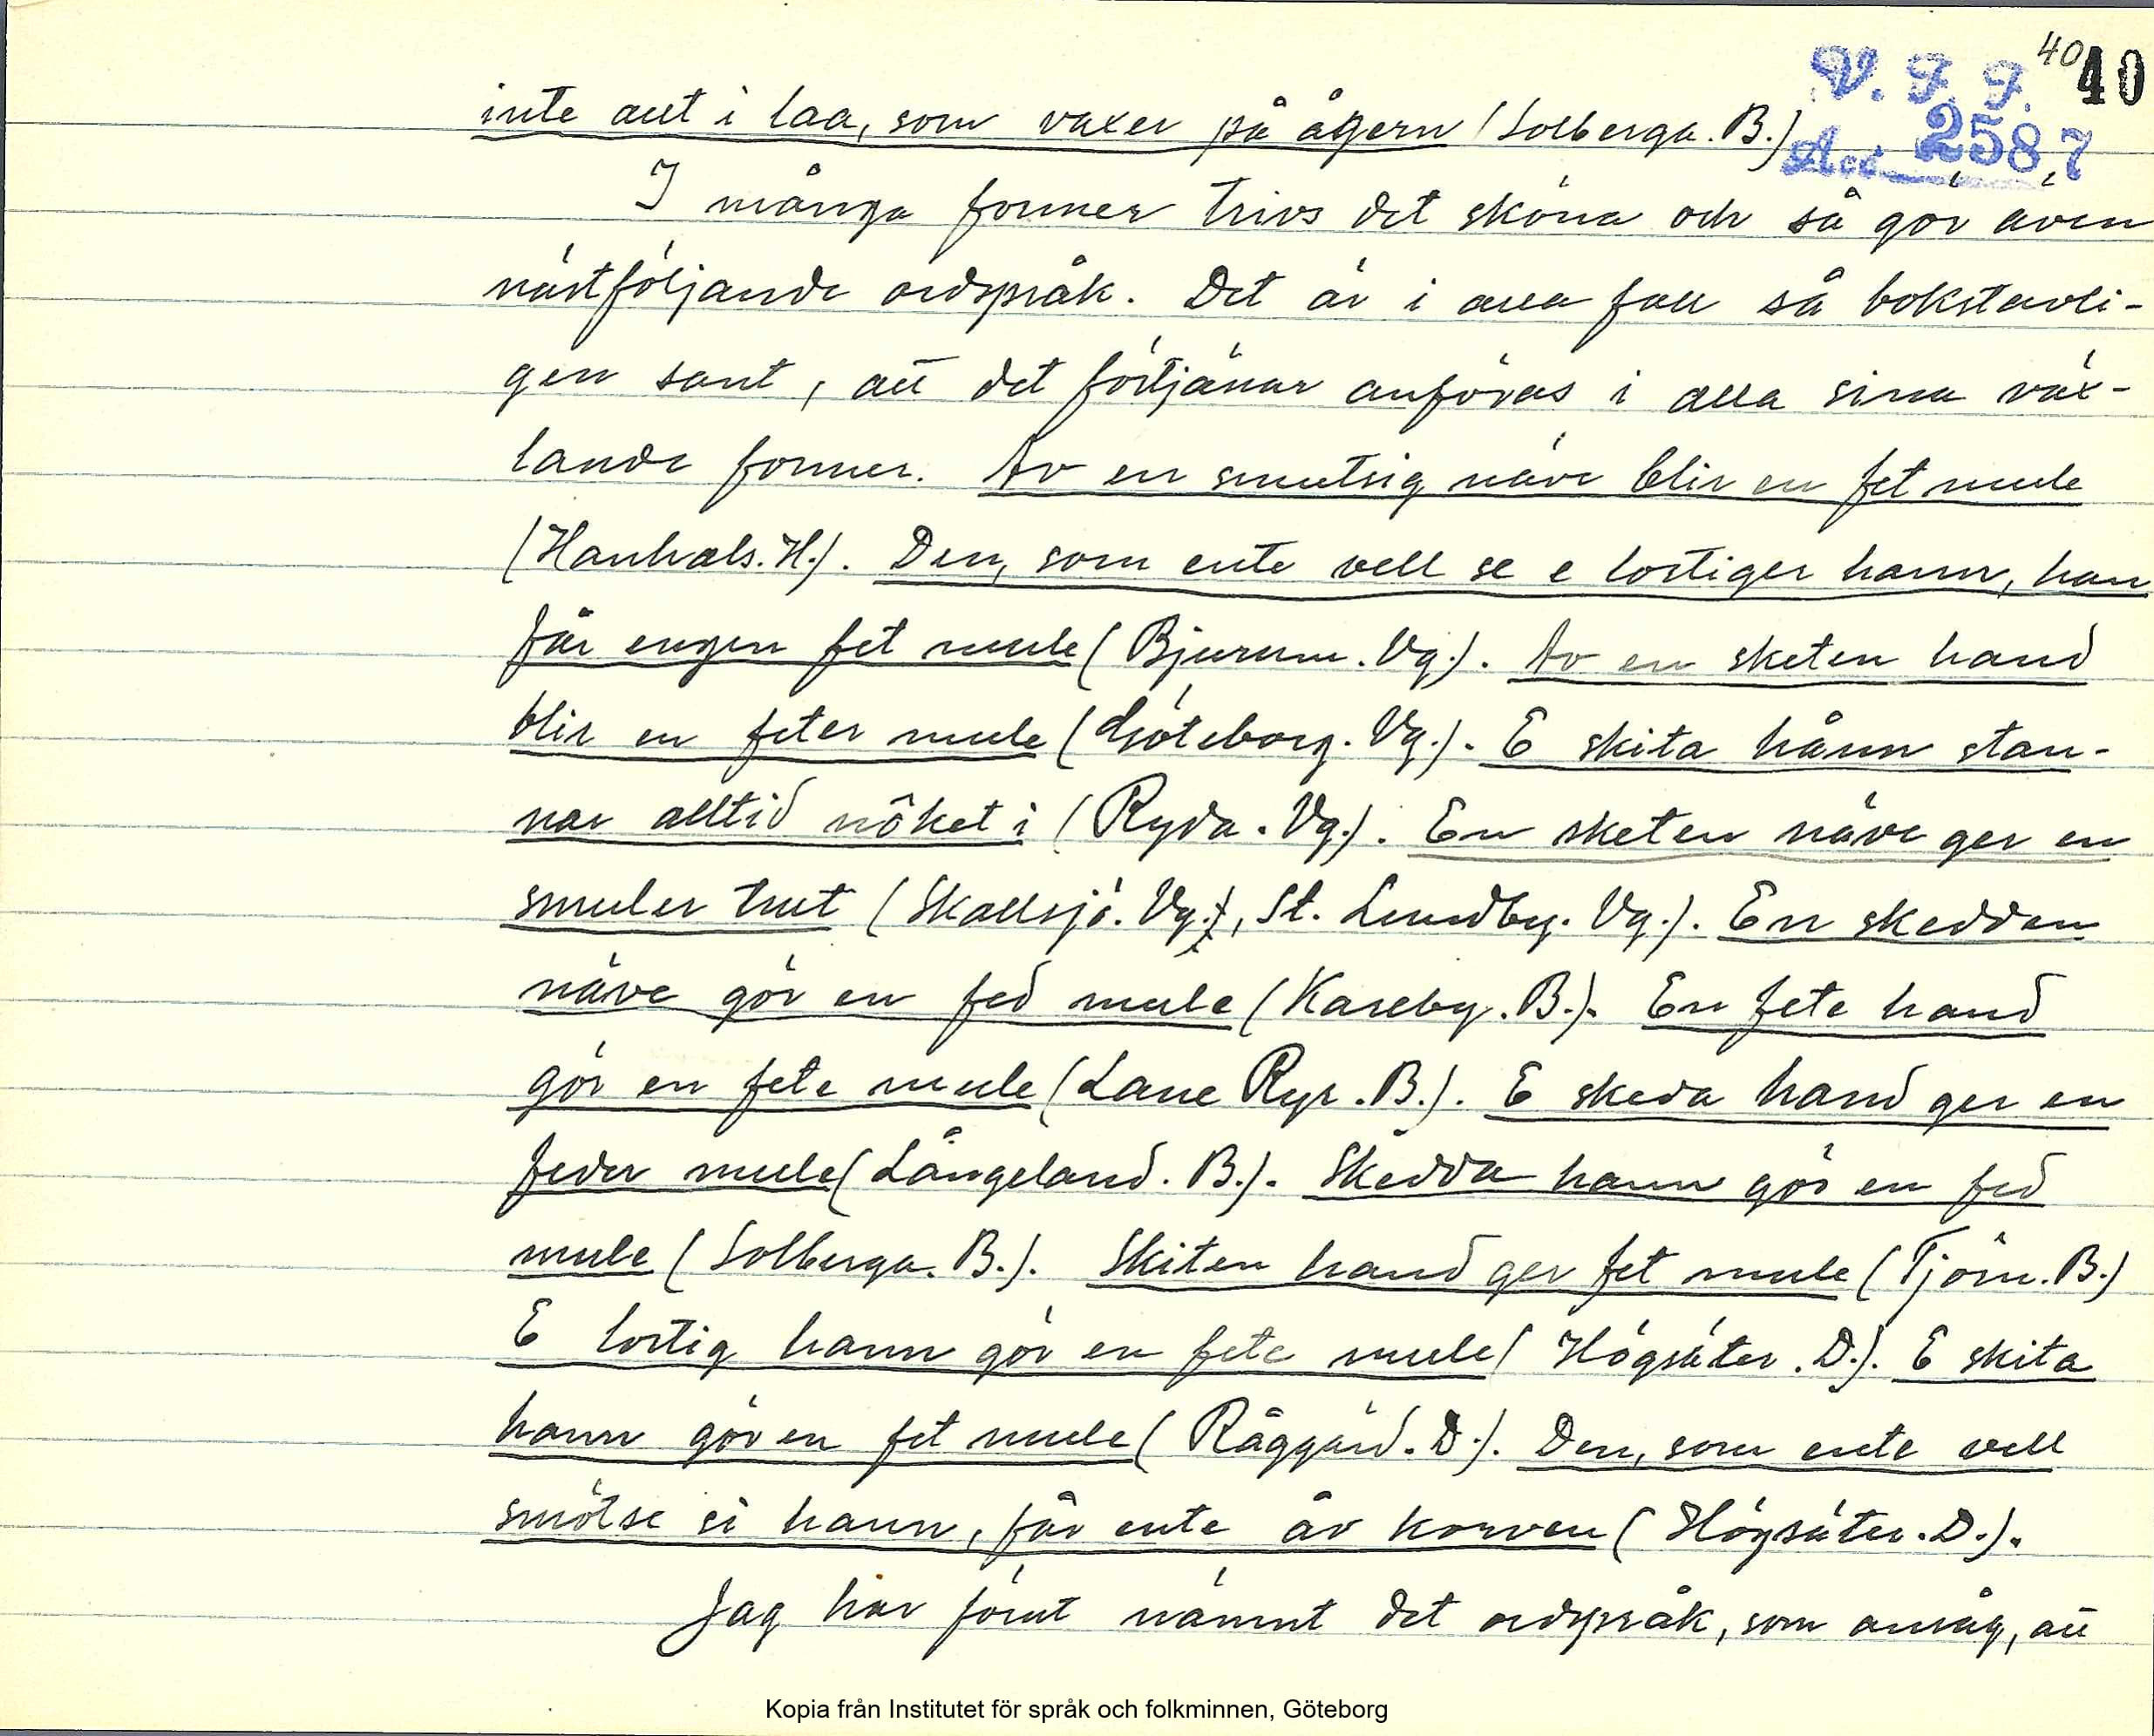 40 40
V. F. F.
Acc 2587
inte allt i laa, som vaxer på ågern (Solberga. B.)
I många former trivs det sköna och så gör även
nästföljande ordspråk. Det är i alla fall så bokstavli-
gen sant, att det förtjänar anföras i alla sina väx-
lande former. Av en smutsig näve blir en fet mule
(Hanhals. H.). Den, som ente vell se e lortiger hann, han
får engen fet mule (Bjurum. Vg.). Av en sketen hand
blir en feter mule (Göteborg. Vg.). E skita hånn stan-
nar alltid nôket i (Ryda. Vg.). En sketen näve ger en
smuler trut (Skallsjö. Vg.), St. Lundby. Vg.). En skedden
näve gör en fed mule (Kareby. B.). En fete hand
gör en fete mule (Lane Ryr. B.). E skeda hand ger en
feder mule (Långeland. B.). Skedda hann gör en fed
mule (Solberga. B.). Skiten hand ger fet mule (Tjörn. B.)
E lortig hann gör en fete mule (Högsäter. D.). E skita
hann gör en fet mule (Råggärd. D.). Den, som ente vell
smötse si hann, får ente åv korven (Högsäter. D.).
Jag har förut nämnt det ordspråk, som ansåg, att
Kopia från Institutet för språk och folkminnen, Göteborg